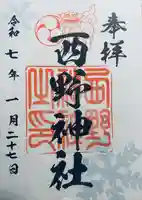 奉拝
西野神社
令和七年一月二十七日